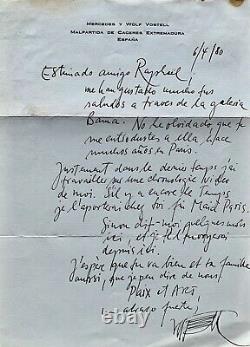 MERCEDES Y WOLF VOSTELL
MALPARTIDA DE CACERES EXTREMADURA
ESPAÑA
6/4/80
Estimado amigo Raphael!
me han gustado mucho sus
saludos a traves de la galeria
No he olvidado que tu
me entrevistastes a ella hace
muchos años en Paris.
Justement dans le dernier temps j'ai
travaillée sur une chronologie video
de moi. S'il y a encore du temps
je l'aporterai chez toi fin Mai à Paris.
Sinon dit-moi quelques mots
ici, et je t'enverrai
depuis ici.
J'espère que tu va bien et ta famille
aussi, que je peu dire de nous!
Paix et ART
abrazo fuerte,